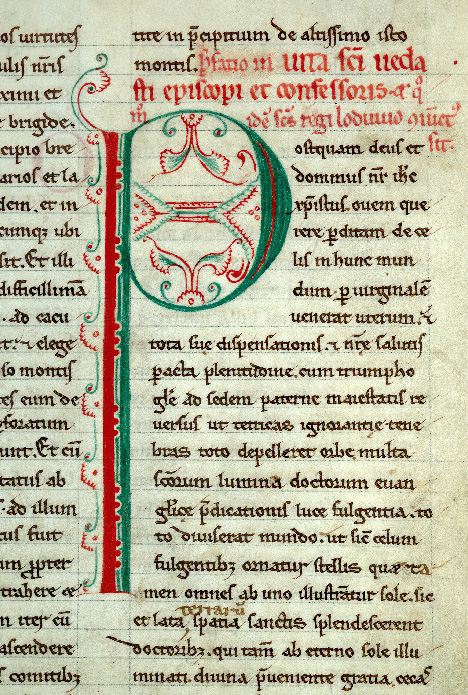 os uirtutes
ulis nr̄is
ximi et
brigide.
cipio bre
arios et la
dem. et in
cumqꝫ ubi
sit. Et illi
difficillimā
. ad cacu
et elege
so montis
es eum de
foratum
unt. Et cū
tatus ab
. ad illum
tus fuit
am ꝓpter
trahere
n iter cū
ascendere
s comitibꝫ
tite in p̄cipitium de altissimo isto
montis. p̄fatio in uita sc̄i ueda
sti episcopi et confessoris
sc̄s regi lodiuuio
Postquam deus et
dominus nr̄ ih̄c
xp̄istus. ouem que
iere ꝑditam de ce
lis in hunc mun
dum. ꝑ uirginalē
uenerat uterum. ⁊
tota sue dispensationis. ⁊ nr̄e salutis
ꝑacta plenitudine. cum triumpho
gl̄e ad sedem paterne maiestatis re
uersus ut tetricas ignorantie tene
bras toto depelleret orbe. multa
sc̄orum lumina doctorum euan
gl̄ice p̄dicationis luce fulgentia. to
to diuiserat mundo. ut sic̄ celum
fulgentibꝫ ornatur stellis
men omnes ab uno illustrātur sole. sic
terrarū
et lata spatia sanctis splendescerent
doctoribꝫ. qui tam̄ ab eterno sole illu
minati. diuina p̄ueniente gratia.